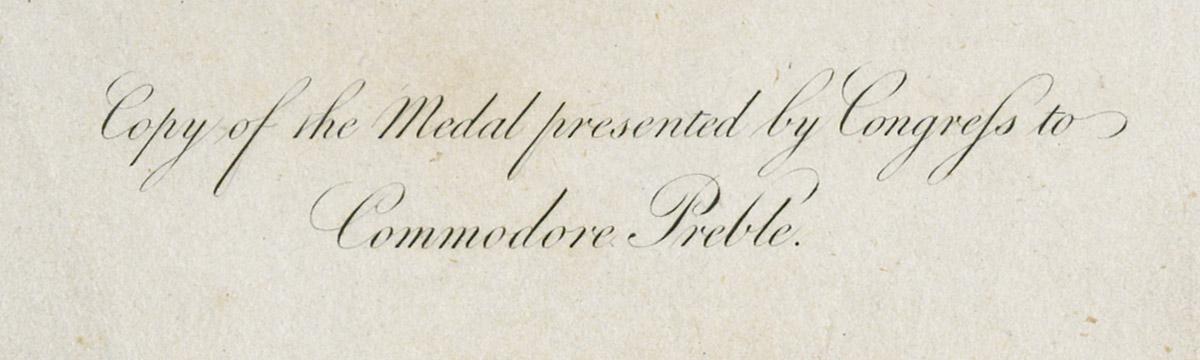 Copy of the Medal presented by Congreſs to
Commodore Preble.